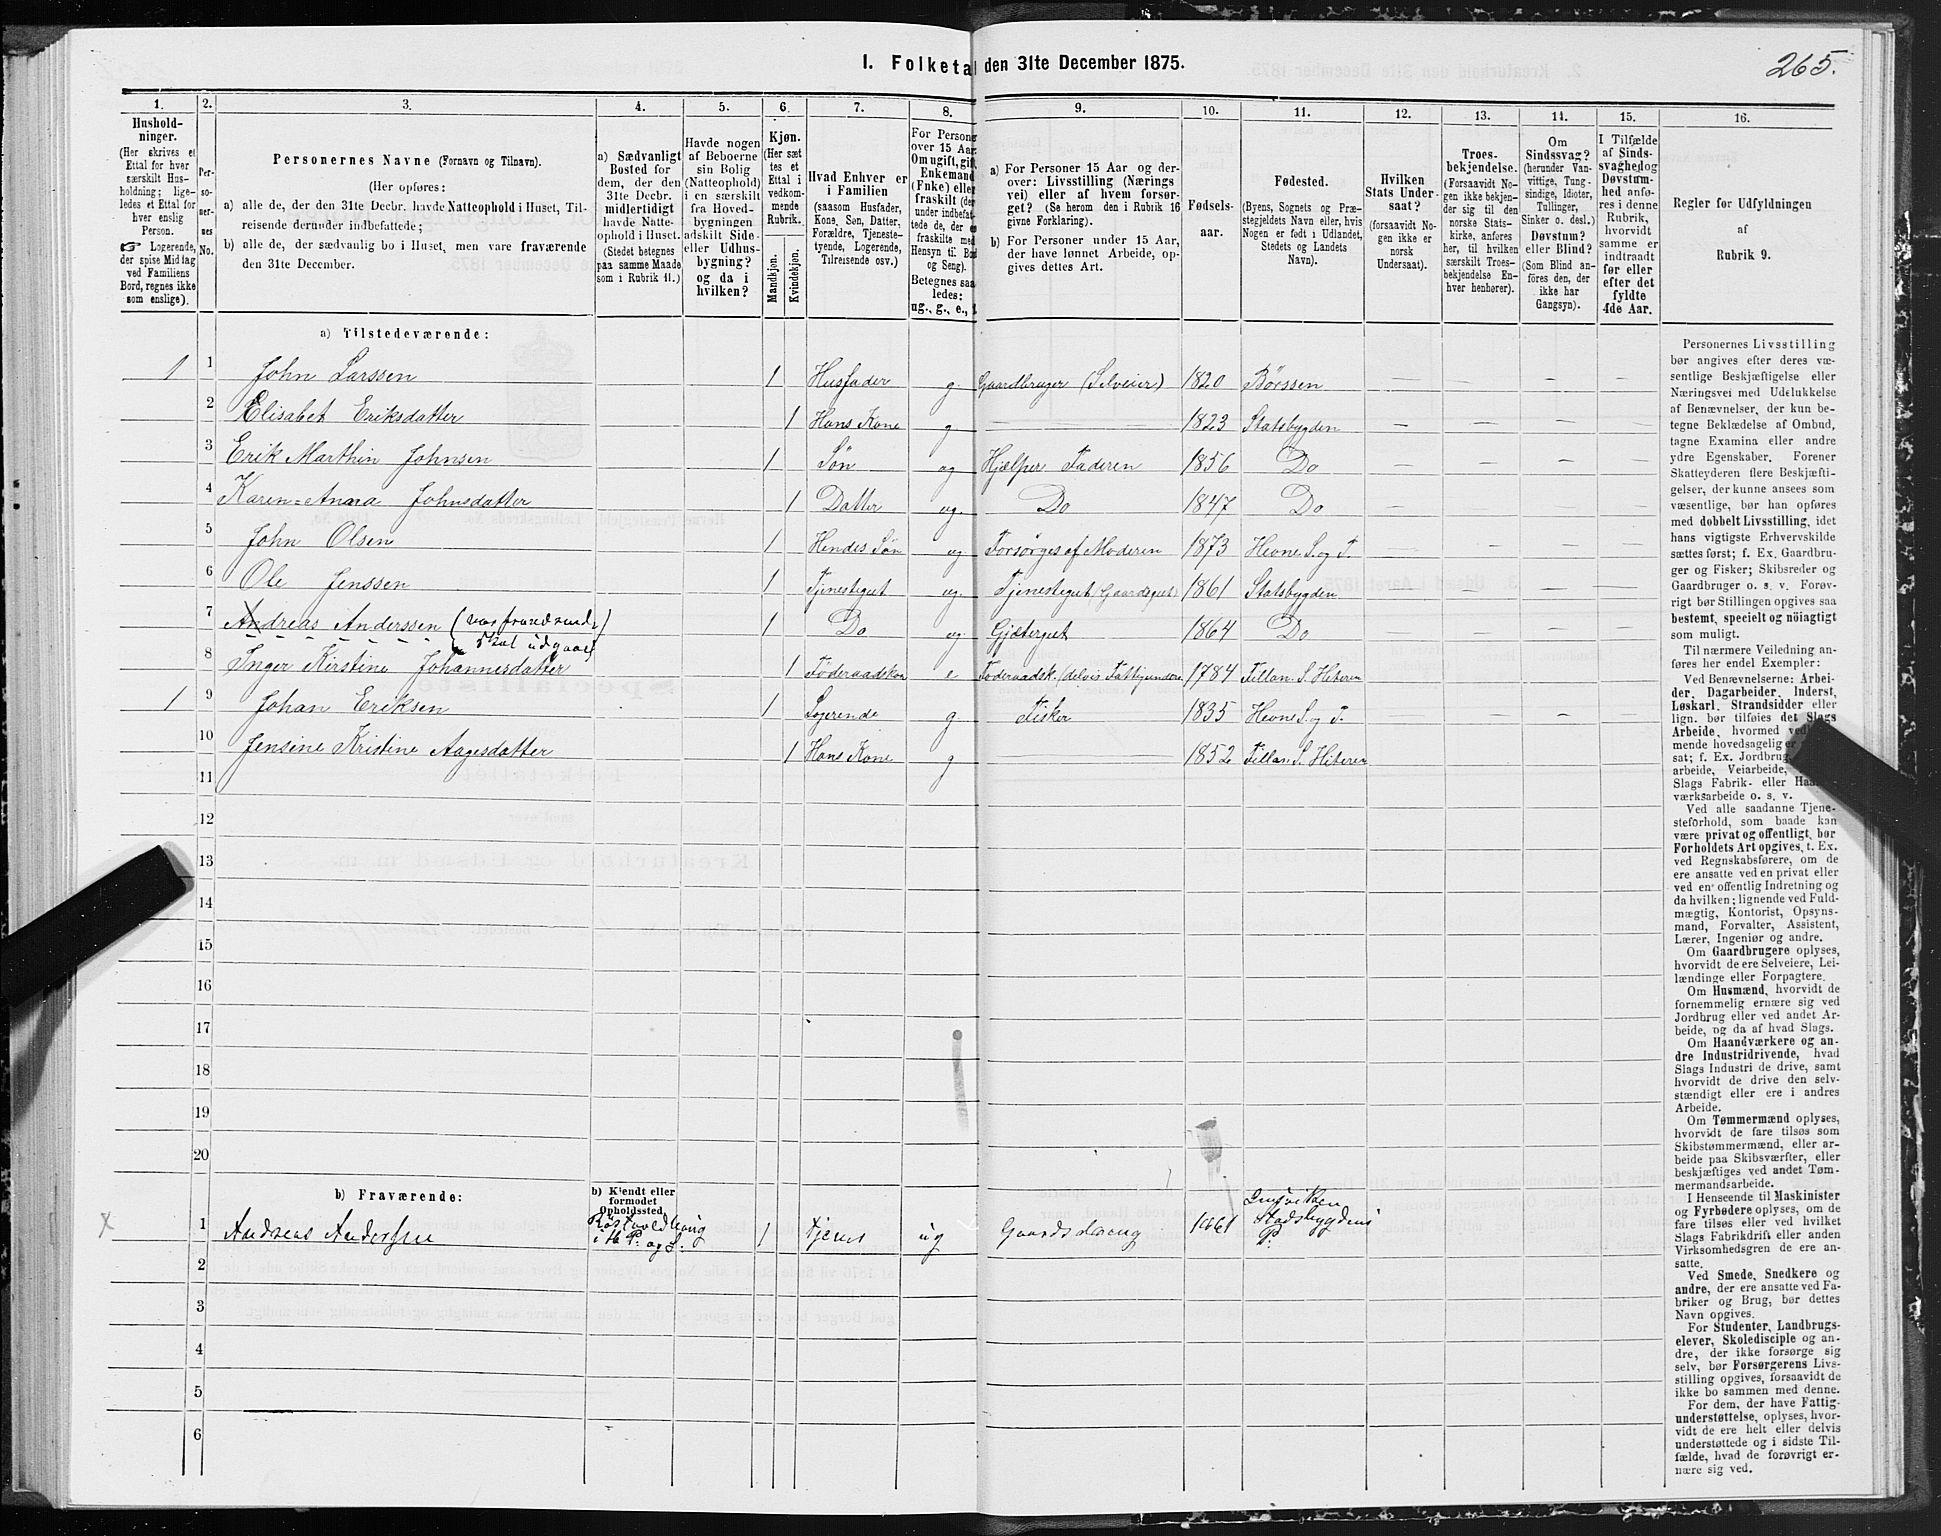 I. Folketal den 31te December 1875.
265.
1.
Hushold-
ninger.
(Her skrives et
Ettal for hver
særskilt Hus-
holdning; lige-
ledes et Ettal for
hver enslig
Person.
☞ Logerende,
der spise Middag
ved Familiens
Bord, regnes ikke
som enslige).
2.
Per-
so-
ner-
nes
No.
3.
Personernes Navne (Fornavn og Tilnavn).
(Her opføres:
a) alle de, der den 31te Decbr. havde Natteophold i Huset, Til-
reisende derunder indbefattede;
b) alle de, der sædvanlig bo i Huset, men vare fraværende
den 31te December.
4.
a) Sædvanligt
Bosted for
dem, der den
31te Decbr.
midlertidigt
havde Natte-
ophold i Huset.
(Stedet betegnes
paa samme Maade
som i Rubrik 11.)
5.
Havde nogen
af Beboerne
sin Bolig
(Natteophold)
i en særskilt
fra Hoved-
bygningen
adskilt Side-
eller Udhus-
bygning?
og da i
hvilken?
6.
Kjøn.
(Her sæt
tes et
Ettal i
vedkom-
mende
Rubrik.
Mandkjøn.
Kvindekjøn.
7.
Hvad Enhver er
i Familien
(saasom Husfader,
Kone, Søn, Datter,
Forældre, Tjeneste-
tyende, Logerende,
Tilreisende osv.)
8.
For Persone
over 15 Aar:
Om ugift, gift,
Enkemand
(Enke) eller
fraskilt (der
under indbefat-
tede de, der e
fraskilte med
Hensyn til Bord
og Seng).
Betegnes saa
ledes:
ug., g., e.,
9.
a) For Personer 15 Aar og der-
over: Livsstilling (Nærings
vei) eller af hvem forsør-
get? (Se herom den i Rubrik 16
givne Forklaring).
b) For Personer under 15 Aar,
der have lønnet Arbeide, op-
gives dettes Art.
10.
Fødsels-
aar.
11.
Fødested.
(Byens, Sognets og Præ-
stegjeldets Navn eller, hvis
Nogen er født i Udlandet,
Stedets og Landets
Navn).
12.
Hvilken
Stats Under-
saat?
(forsaavidt No-
gen ikke er
norsk
Undersaat).
13.
Troes-
bekjendelse.
(Forsaavidt No-
gen ikke bekjen-
der sig til den
norske Stats-
kirke, anføres
her, til hvilken
særskilt Troes-
bekjendelse En-
hver henhører).
14.
Om
Sindssvag?
(herunder Van-
vittige, Tung-
sindige, Idioter,
Tullinger,
Sinker o. desl.)
Døvstum?
eller Blind?
(Som Blind an-
føres den, der
ikke har
Gangsyn).
15.
I Tilfælde
af Sinds-
svaghed og
Døvstum-
hed anfø-
res i denne
Rubrik,
hvorvidt
samme er
indtraadt
før eller
efter det
fyldte
4de Aar.
16.
Regler for Udfyldningen
af
Rubrik 9.
a) Tilstedeværende:
1 1 John Larssen 1 Husfader g. Gaardbruger (Selveier) 1820 Børssen — — — —
2 Elisabet Eriksdatter 1 Hans Kone g. — 1823 Statsbygden — — — —
3 Erik Marthin Johnsen 1 Søn ug Hjælper Faderen 1856 Do — — — —
4 Karen=Anna Johnsdatter 1 Datter ug. Do 1847 Do — — — —
5 John Olsen 1 Hendes Søn ug Forsørges af Moderen 1873 Hevne S. og P. — — — —
6 Ole Jenssen 1 Tjenestegut ug. Tjenestegut (Gaardsgut) 1861 Statsbygden — — — —
7 Andreas Anderssen (var fraværende 1 Do ug Gjætergut 1864 Do — — — —
skal udgaae)
8 Inger Kirstine Johannesdatter 1 Føderaadskone e Føderaadsk. (delvis Fattigunders. 1784 Fillan S. Hiteren — — — —
1 9 Johan Eriksen 1 Logerende g Fisker 1835 Hevne S. og P. — — — —
10 Jensine Kristine Aagesdatter 1 Hans Kone g — 1852 Fillan S. Hiteren
11
12
13
14
15
16
17
18
19
20
b) Fraværende:
b) Kjendt eller
formodet
Opholdssted.
x 1 Andreas Anderssen i H. P. og S. 1 Tjener ug Gaardsdreng 1861 Stadsbygdens
P.
2
3
4
5
6
Personernes Livsstilling
bør angives efter deres væ-
sentlige Beskjæftigelse eller
Næringsvei med Udelukkelse
af Benævnelser, der kun be-
tegne Beklædelse af Ombud,
tagne Examina eller andre
ydre Egenskaber. Forener
Skatteyderen flere Beskjæfti-
gelser, der kunne ansees som
væsentlige, bør han opføres
med dobbelt Livsstilling, idet
hans vigtigste Erhvervskilde
sættes først; f. Ex. Gaardbru-
ger og Fisker; Skibsreder og
Gaardbruger o. s. v. Forøv-
rigt bør Stillingen opgives saa
bestemt, specielt og nöiagtigt
som muligt.
Til nærmere Veiledning an-
føres her endel Exempler:
Ved Benævnelserne: Arbei-
der, Dagarbeider, Inderst,
Løskarl, Strandsidder eller
lign. bør tilføies det Slags
Arbeide, hvormed ved
mende hovedsagelig er
sat; f. Ex. Jordbrug,
arbeide, Veiarbeide,
Slags Fabrik- eller Haand-
værksarbeide o. s. v.
Ved alle saadanne Tjene-
steforhold, som baade kan
være privat og offentligt, bør
Forholdets Art opgives, t. Ex.
ved Regnskabsførere, om de
ere ansatte ved en privat eller
ved en offentlig Indretning og
da hvilken; lignende ved Fuld-
mægtig, Kontorist, Opsyns-
mand, Forvalter, Assistent,
Lærer, Ingeniør og andre.
Om Gaardbrugere oplyses,
hvorvidt de ere Selveiere, Lei-
lændinge eller Forpagtere.
Om Husmænd, hvorvidt de
fornemmelig ernære sig ved
Jordbrug eller ved andet Ar-
beide, og da af hvad Slags.
Om Haandværkere og an-
dre Industridrivende, hvad
Slags Industri de drive, samt
hvorvidt de drive den selv-
stændigt eller ere i andres
Arbeide.
Om Tømmermænd oplyses,
hvorvidt de fare tilsøs som
Skibstømmermænd, eller ar-
beide paa Skibsværfter, eller
beskjæftiges ved andet Tøm-
mermandsarbeide.
I Henseende til Maskinister
og Fyrbødere oplyses, om de
fare tilsøs eller ved hvilket
Slags Fabrikdrift eller anden
Virksomhedsgren de ere an-
satte.
Ved Smede, Snedkere og
andre, der ere ansatte ved Fa-
briker og Brug, bør dettes
Navn opgives.
For Studenter, Landbrugs-
elever, Skoledisciple og an-
dre, der ikke forsørge sig
selv, bør Forsørgerens Livs-
stilling opgives, forsaavidt de
ikke bo sammen med denne.
For dem, der have Fattig-
understøttelse, oplyses, hvor-
vidt de ere helt eller delvis
understøttede og i sidste Til-
fælde, hvad de forøvrigt er-
nære sig ved.